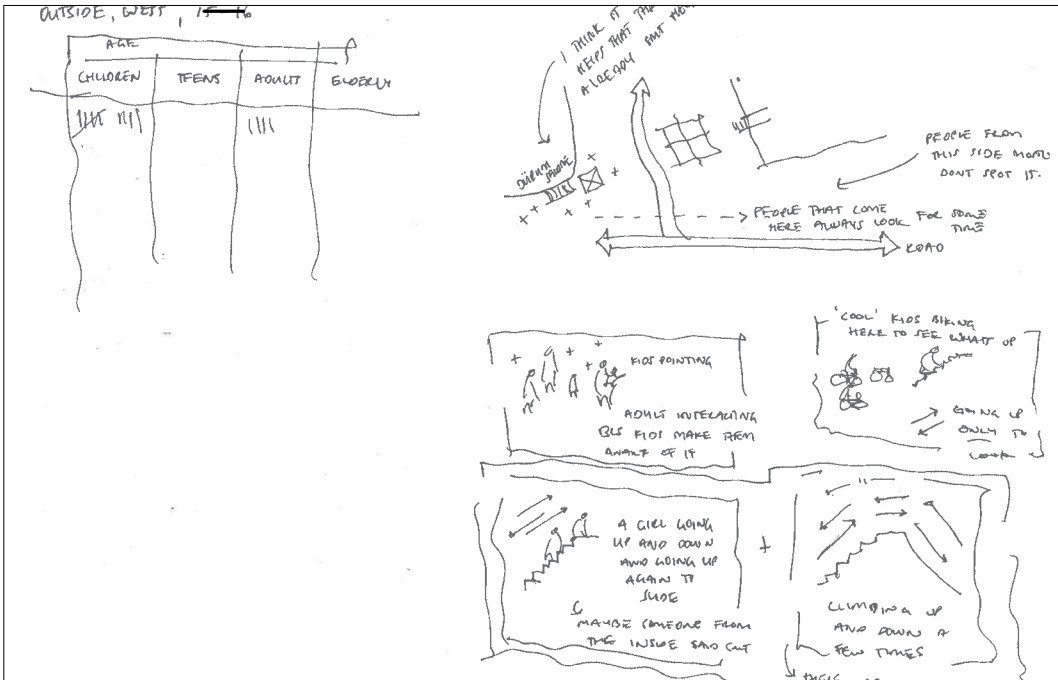 OUTSIDE, WEST, 15-16
AGE
CHILDREN TEENS ADULTS ELDERLY
I THINK IT
HELPS THAT
ALREADY
DÜRUM
PEOPLE FROM
THIS SIDE
DONT SPOT IT.
PEOPLE THAT COME
HERE ALWAYS LOOK FOR SOME
TIME
ROAD
KIDS POINTING
ADULT INTERACTING
KIDS MAKE THEM
AWARE OF IT
'COOL' KIDS BIKING
HERE TO SEE WHATS UP
GOING UP
ONLY TO
LOOK
A GIRL GOING
UP AND DOWN
AND GOING UP
AGAIN TO
SLIDE
MAYBE SOMEONE FROM
THE INSIDE SAID
+
CLIMBING UP
AND DOWN A
FEW TIMES